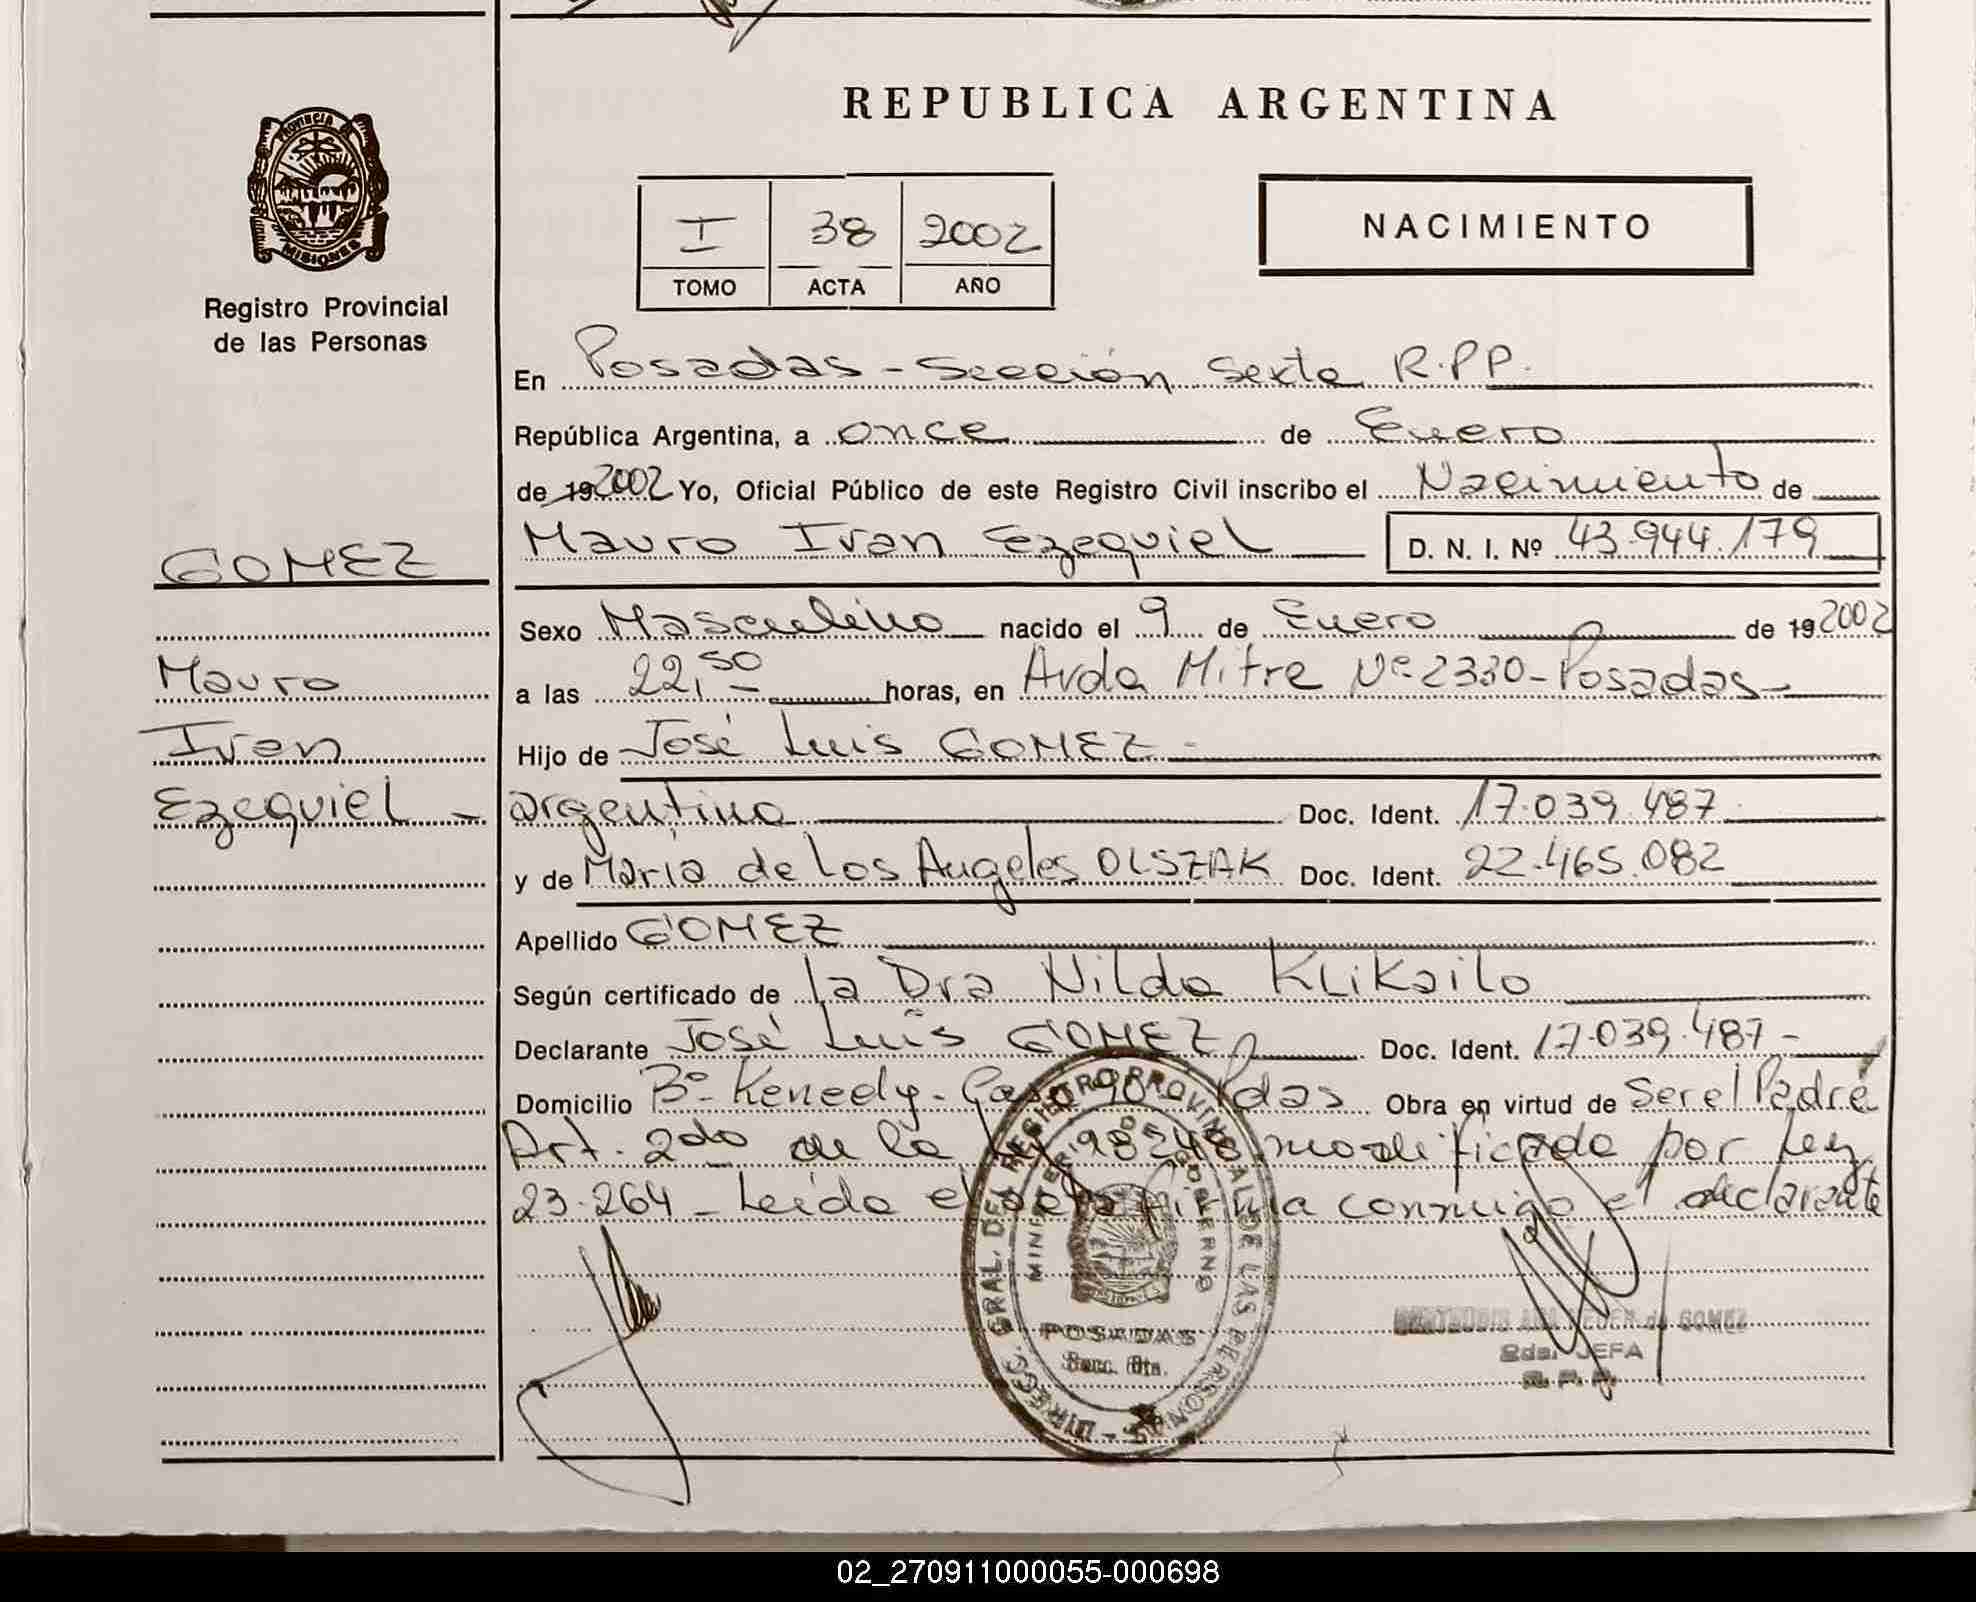 REPUBLICA ARGENTINA
PROVINCIA DE
MISIONES
Registro Provincial
de las Personas
I 38 2002
TOMO ACTA AÑO
NACIMIENTO
En Posadas - Sección Sexta R.P.P.
República Argentina, a once de Enero
de 19 2002 Yo, Oficial Público de este Registro Civil inscribo el Nacimiento de
GOMEZ
Mauro Ivan Ezequiel D. N. I. Nº 43.944.179
Sexo Masculino nacido el 9 de Enero de 19 2002
Mauro
a las 22,50 - horas, en Avda Mitre Nº 2330 - Posadas -
Ivan
Hijo de José Luis GOMEZ -
Ezequiel -
argentino Doc. Ident. 17.039.487
y de Maria de Los Angeles OLSZAK Doc. Ident. 22.465.082
Apellido GOMEZ
Según certificado de la Dra Nilda KLiKailo
Declarante José Luis GOMEZ Doc. Ident. 17.039.487 -
Domicilio Bº Kenedy - Casa 90 - Pdas Obra en virtud de Ser el Padre
Art. 2do de la Ley 18248 modificada por Ley
23.264 - Leida el acta firma conmigo el declarante
DIRECC. GRAL. DEL REGISTRO PROVINCIAL DE LAS PERSONAS
MINISTERIO DE GOBIERNO
POSADAS
Secc. 6ta.
de GOMEZ
2da. JEFA
R. P. P.
02_270911000055-000698